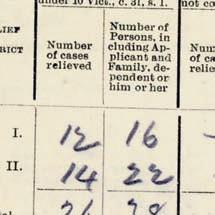 under 10 Vict., c. 31, s. 1.
not co
LIEF
RICT
Number
of cases
relieved
Number of
Persons, in-
cluding Ap-
plicant and
Family, de-
pendent on
him or her
Nu
of ca
reli
I. 12 16
II. 14 22
26